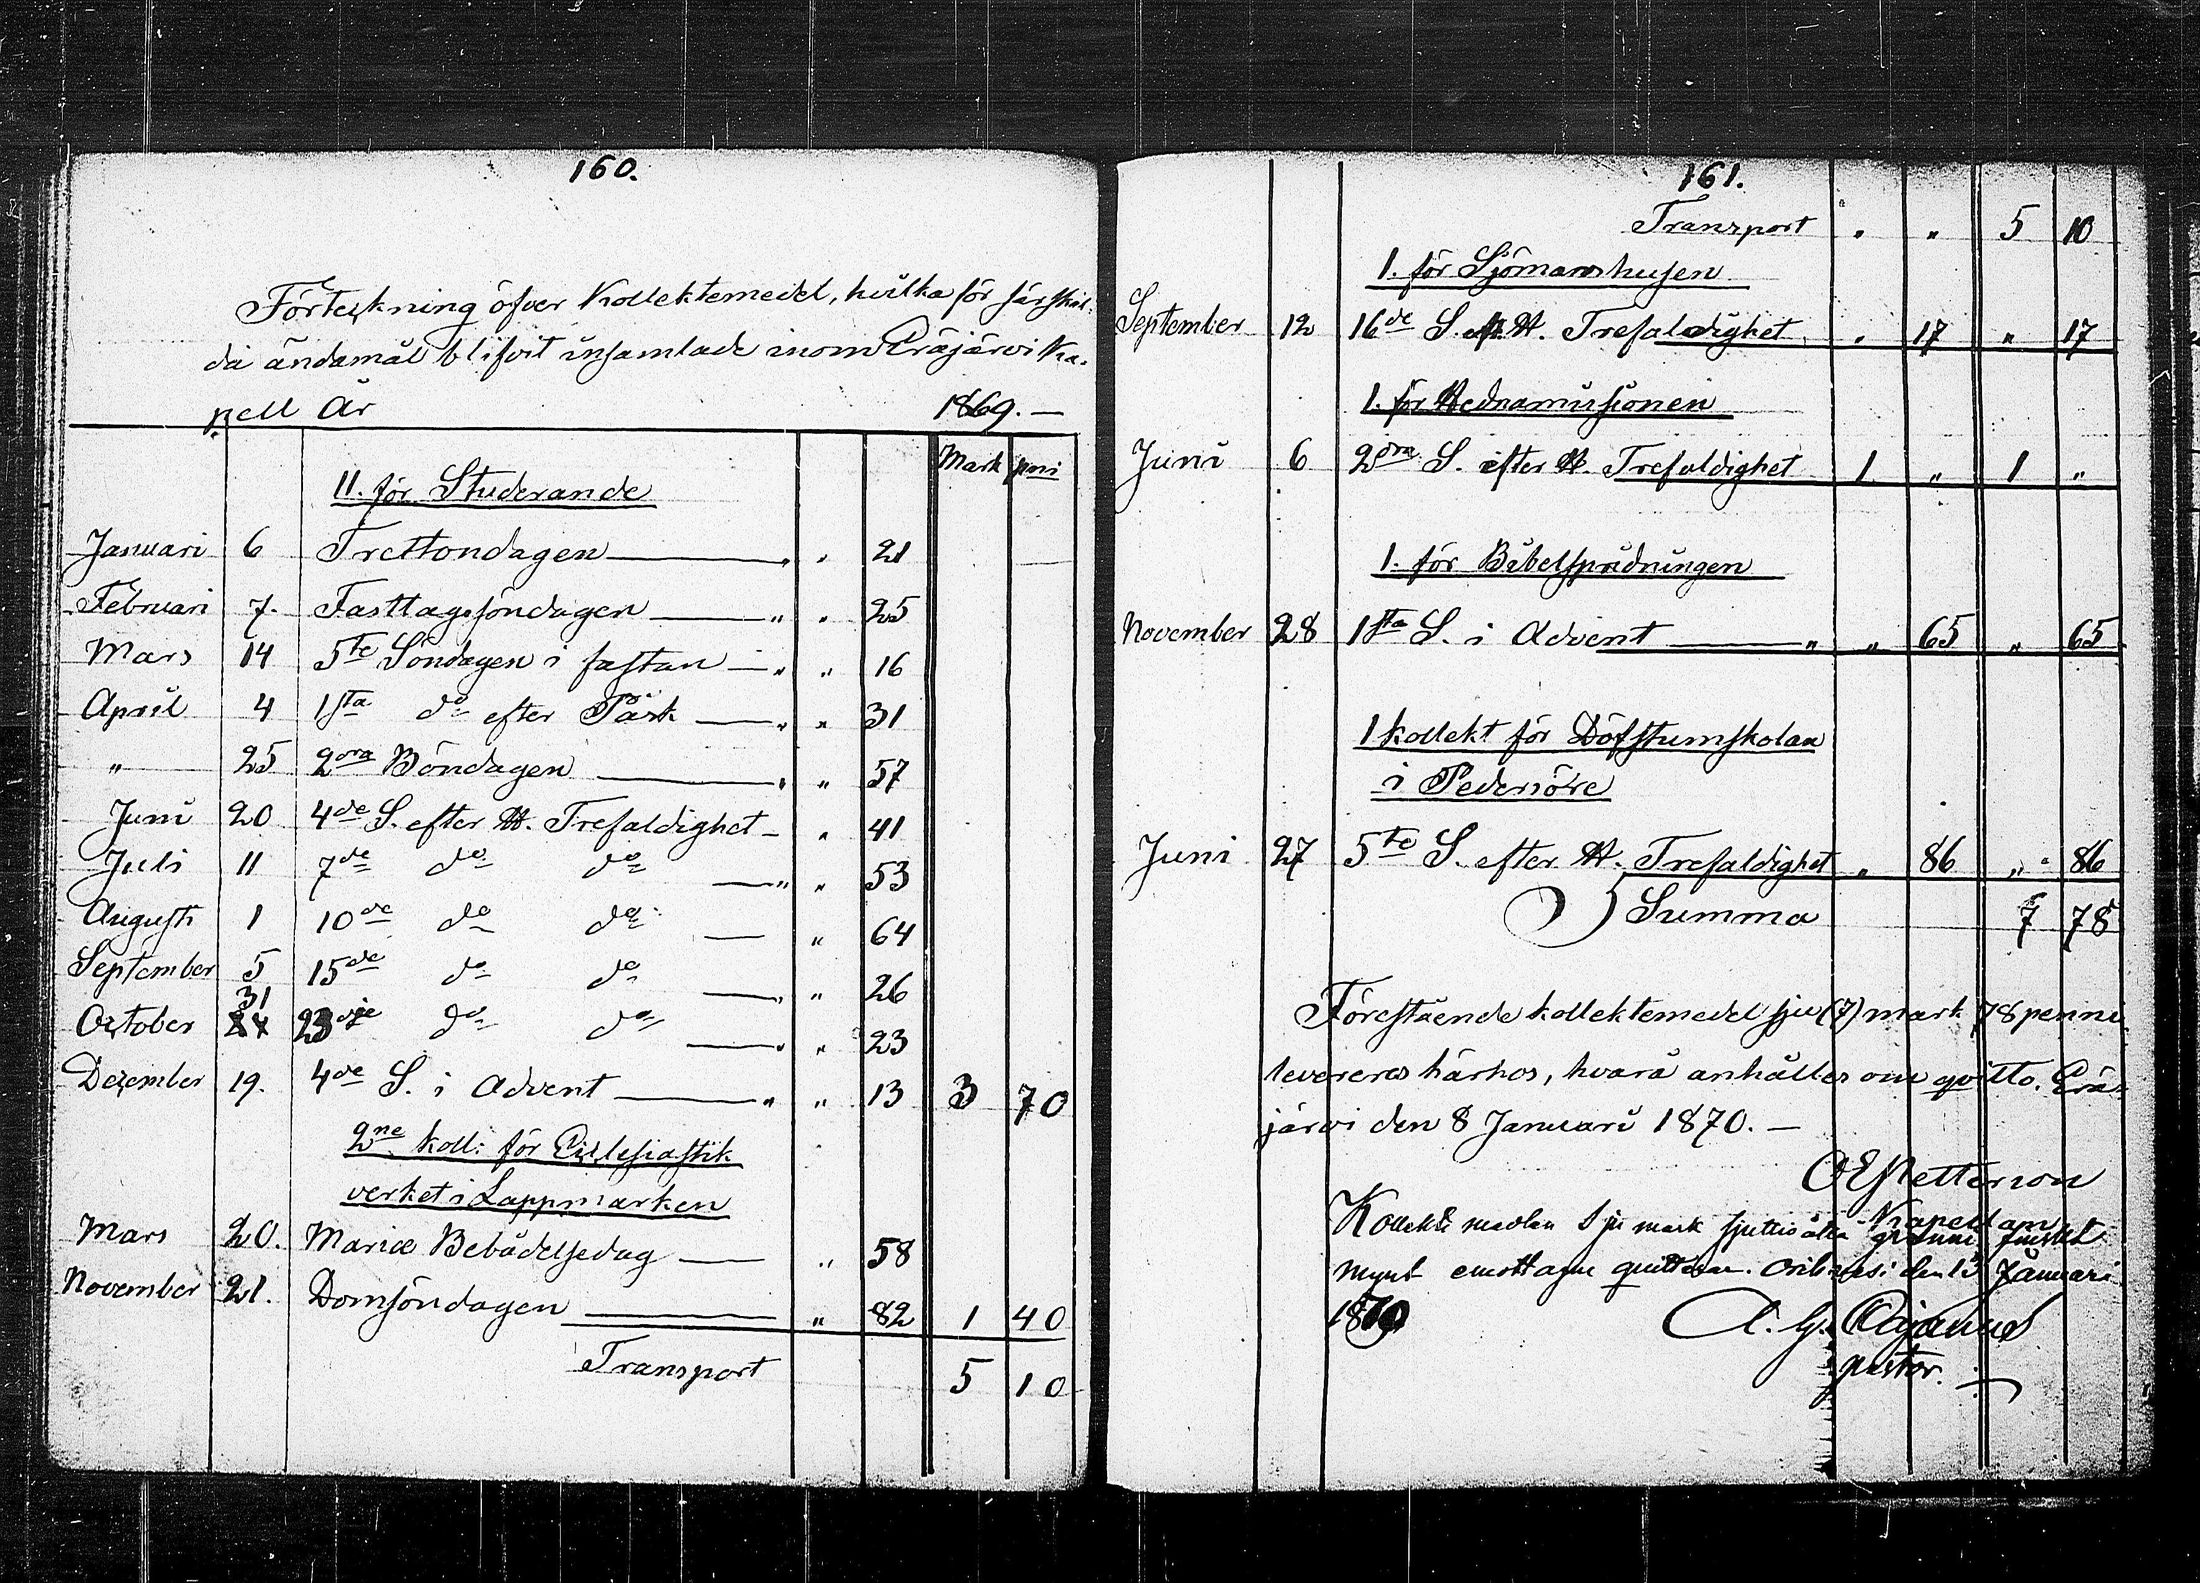 160.
Förteckning öfver Kollektemedel, hvilka för särskil-
da ändamål blifvit insamlade inom Eräjärvi Ka-
pell År 1869. —
Mark pni
11. för Studerande
Januari 6 Trettondagen — " " 21
Februari 7. Fasttagssöndagen — " " 25
Mars 14 5te Söndagen i fastan — " " 16
April 4 1sta do efter Påsk — " " 31
" 25 2ora Böndagen — " " 57
Juni 20 4de S. efter H. Trefaldighet — " 41
Juli 11 7de do do — " " 53
Augusti 1 10de do do — " 64
September 5 15de do do — " " 26
31
October 24 23dje do do — " " 23
December 19. 4de S. i Advent — " " 13 3 70
2ne koll: för Ecclesiastik
verket i Lappmarken
Mars 20. Mariæ Bebådelsedag — " 58
November 21. Domsöndagen — " 82 1 40
Transport 5 10
161.
Transport " " 5 10
1. för Sjömanshusen
September 12 16de S. eft. H. Trefaldighet " 17 " 17
1. för Hednamissionen
Juni 6 2ora S. efter H. Trefaldighet 1 " 1 "
1. för Bibelspridningen
November 28 1sta S. i Advent — " " 65 " 65
1 kollekt för Döfstumskolan
i Pedersöre
Juni 27 5te S. efter H. Trefaldighet " 86 " 86
Summa 7 78
Förestående kollektemedel sju (7) mark 78 penni
levereras härhos, hvarå anhålles om qvitto. Erä-
järvi den 8 Januari 1870. —
OEPettersson
Kapellan
Kollekt medlen Sju mark sjuttio åtta penni finskt
mynt emottagne quitteras. Orihvesi den 13 Januari
1870
A. G.
pastor.